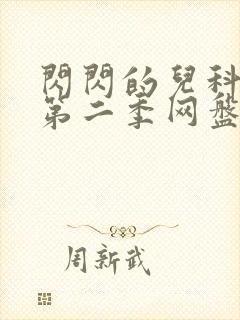 閃閃的兒科
第二季网盤
周新武